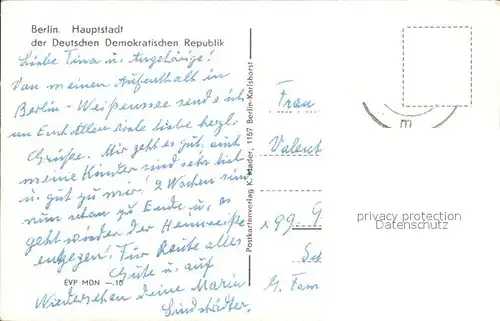 Berlin. Hauptstadt
der Deutschen Demokratischen Republik
Liebe Tina u. Angehörige!
Von meinen Aufenthalt in
Berlin - Weißensee sende ich
Euch Allen viele liebe herzl.
Grüße. Mir geht es gut, auch
meine Kinder sind sehr lieb
u. gut zu mir. 2 Wochen sind
nun schon zu Ende u. es
geht wieder der Heimreise
entgegen! Für Heute alles
Gute u. auf
Wiedersehen deine Maria
Lindstädter.
EVP MDN —.10
Postkartenverlag K. Mader, 1157 Berlin-Karlshorst
Frau
Valent
x 99. G
G. Fam
m
privacy protection
Datenschutz